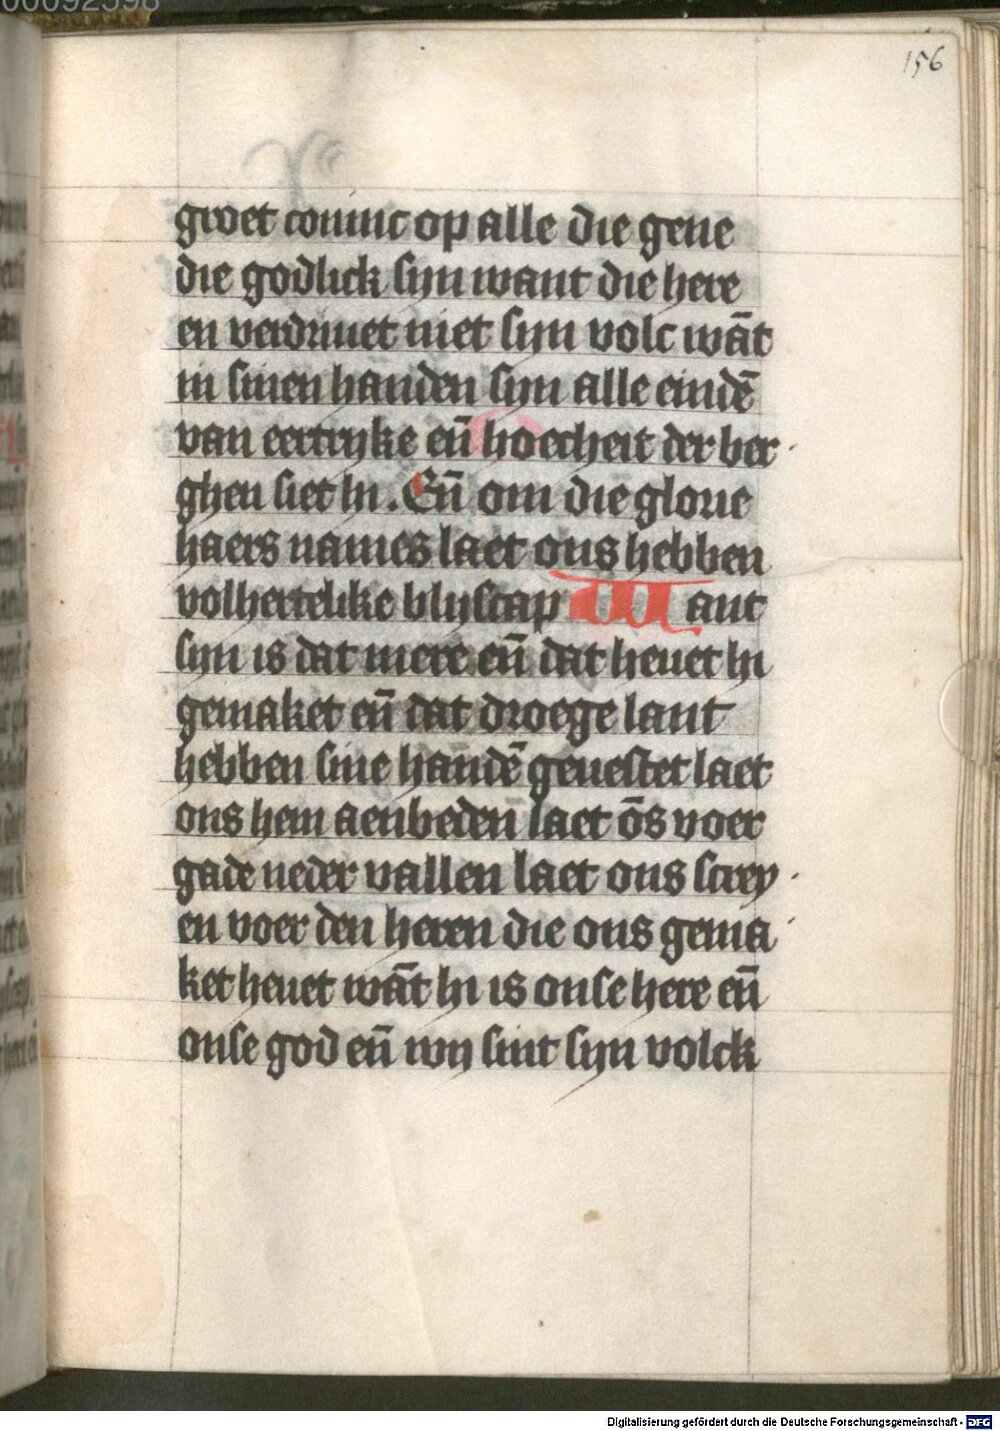 00092598
156
groet coninc op alle die gene
die godlick syn want die here
en verdriuet niet syn volc wāt
in sinen handen syn alle eindē
van eertryke eñ hoecheit der ber
ghen siet hi. Eñ om die glorie
haers names laet ons hebben
volhertelike blyscap Want
syn is dat mere eñ dat heuet hi
gemaket eñ dat droege lant
hebben sine handē geuestet laet
ons hem aenbeden laet ōs voer
gade neder vallen laet ons screy
en voer den heren die ons gema
ket heuet wāt hi is onse here eñ
onse god eñ wy sint syn volck
Digitalisierung gefördert durch die Deutsche Forschungsgemeinschaft - DFG